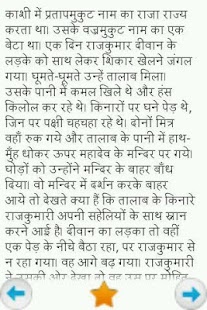 काशी में प्रतापमुकुट नाम का राजा राज्य
करता था। उसके वज्रमुकुट नाम का एक
बेटा था। एक दिन राजकुमार दीवान के
लड़के को साथ लेकर शिकार खेलने जंगल
गया। घूमते-घूमते उन्हें तालाब मिला।
उसके पानी में कमल खिले थे और हंस
किलोल कर रहे थे। किनारों पर घने पेड़ थे,
जिन पर पक्षी चहचहा रहे थे। दोनों मित्र
वहाँ रुक गये और तालाब के पानी में हाथ-
मुँह धोकर ऊपर महादेव के मन्दिर पर गये।
घोड़ों को उन्होंने मन्दिर के बाहर बाँध
दिया। वो मन्दिर में दर्शन करके बाहर
आये तो देखते क्या हैं कि तालाब के किनारे
राजकुमारी अपनी सहेलियों के साथ स्नान
करने आई है। दीवान का लड़का तो वहीं
एक पेड़ के नीचे बैठा रहा, पर राजकुमार से
न रहा गया। वह आगे बढ़ गया। राजकुमारी
ने उसकी ओर देखा तो वह उस पर मोहित